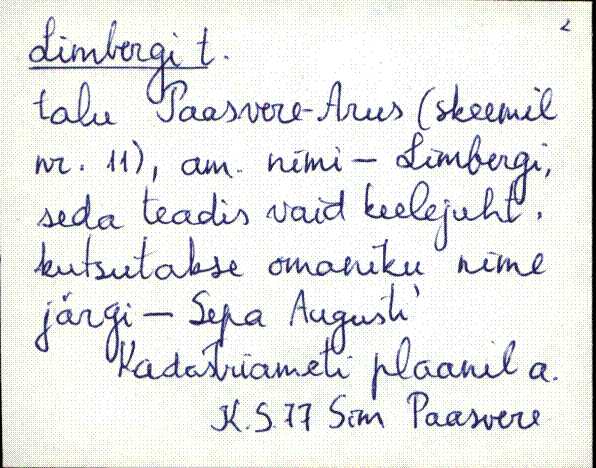 Limbergi t.
talu Paasvere-Arus (skeemil
nr. 11), am. nimi – Limbergi,
seda teadis vaid keelejuht.
kutsutakse omaniku nime
järgi – Sepa Augusti
Kadastriameti plaanil a.
K.S. 77 Sim Paasvere